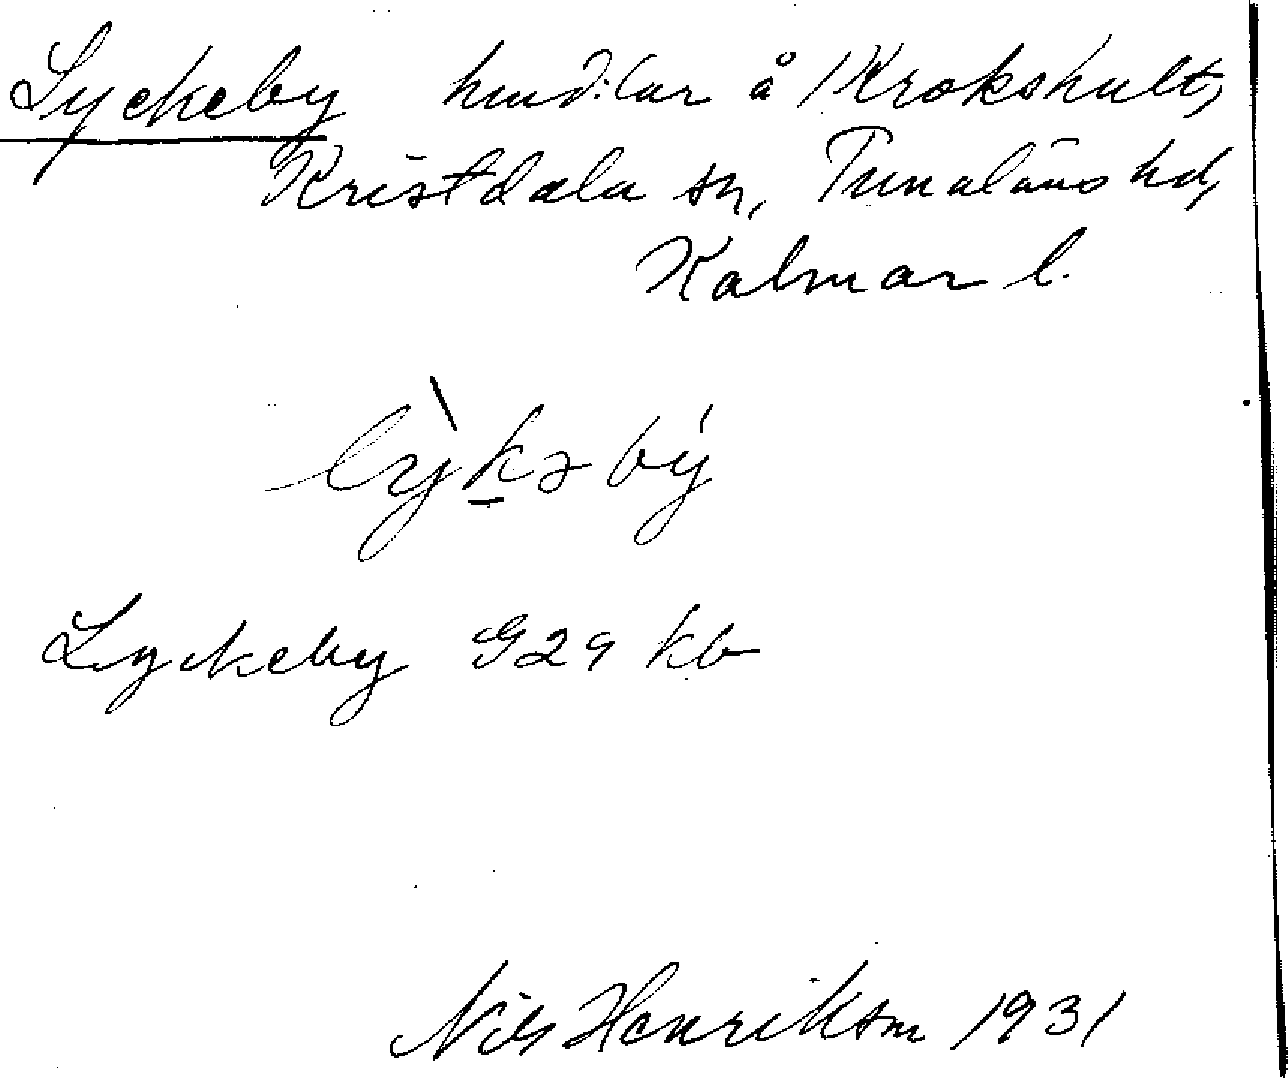 Lyckeby hmd:lar å Krokshult,
Kristdala sn, Tunaläns hd,
Kalmar l.
lỳkəbý
Lyckeby G29 kb
Nils Henrikson 1931